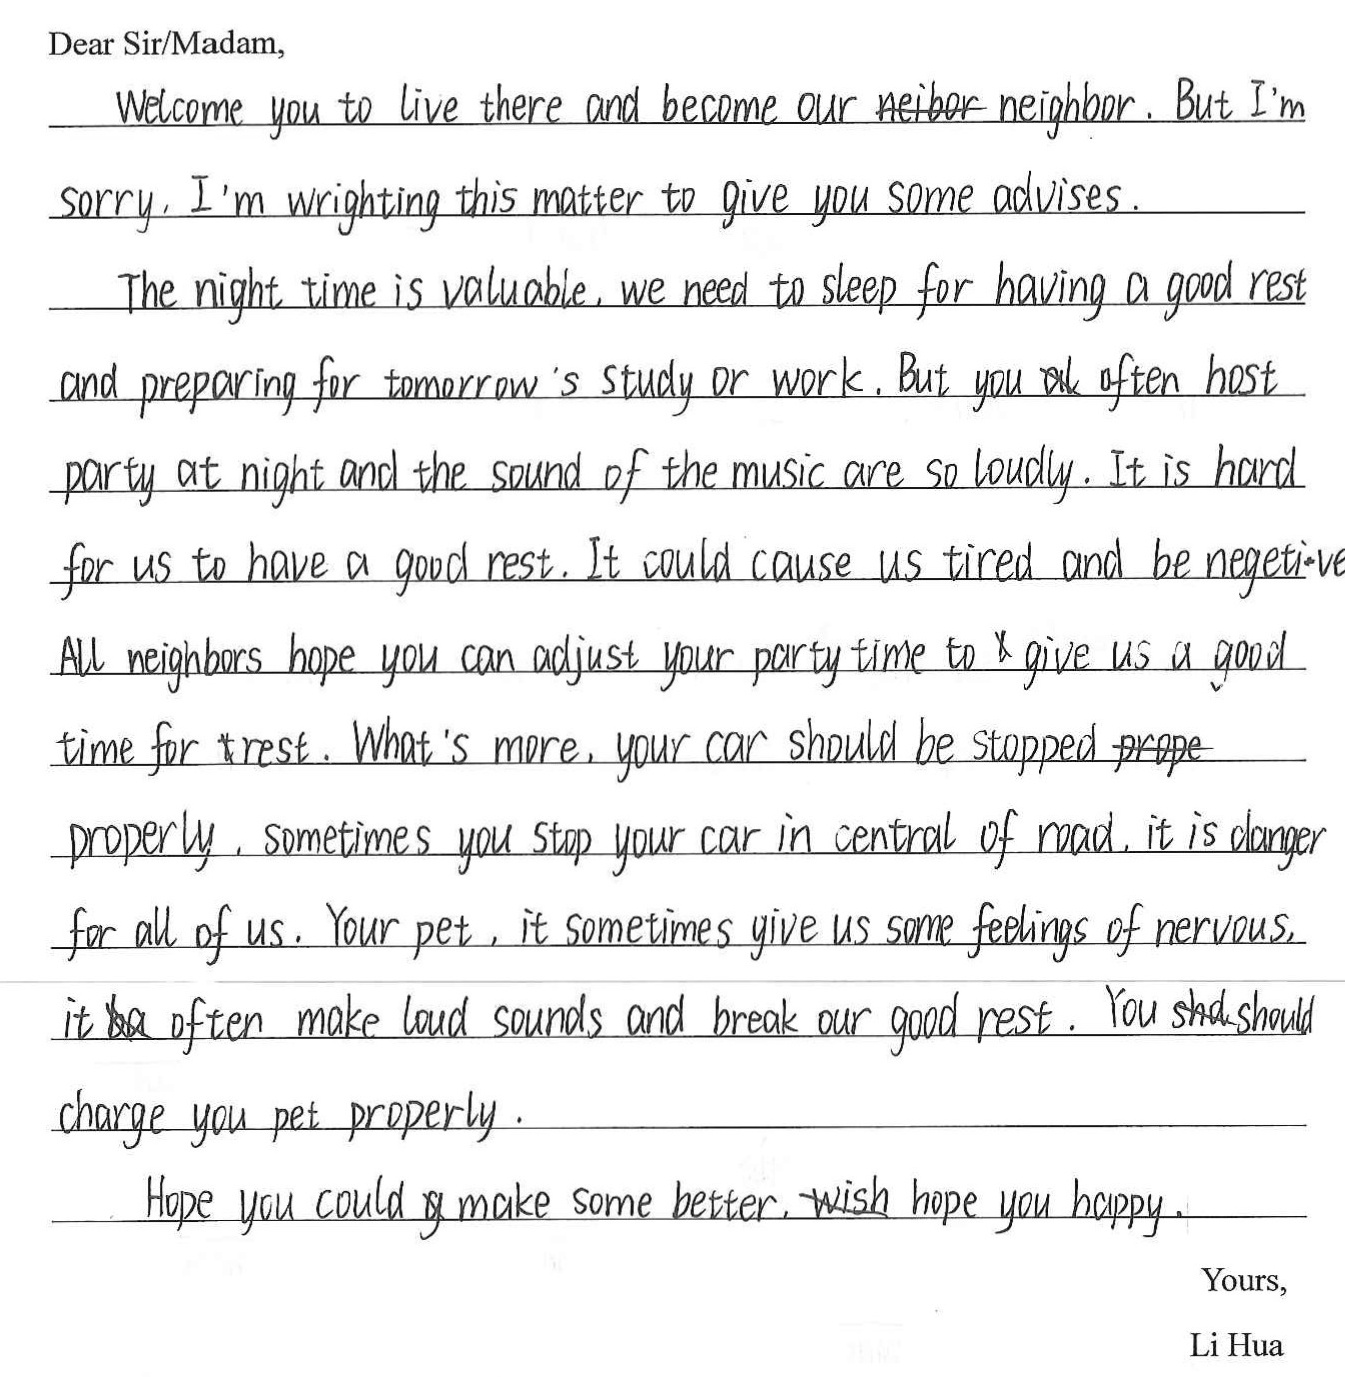 Dear Sir/Madam,
Welcome you to live there and become our neibor neighbor. But I'm
sorry, I'm wrighting this matter to give you some advises.
The night time is valuable, we need to sleep for having a good rest
and preparing for tomorrow's study or work. But you often host
party at night and the sound of the music are so loudly. It is hard
for us to have a good rest. It could cause us tired and be negetive
All neighbors hope you can adjust your party time to give us a good
time for rest. What's more, your car should be stopped prope
properly, sometimes you stop your car in central of road, it is danger
for all of us. Your pet, it sometimes give us some feelings of nervous,
it often make loud sounds and break our good rest. You shd should
charge you pet properly.
Hope you could make some better, wish hope you happy.
Yours,
Li Hua